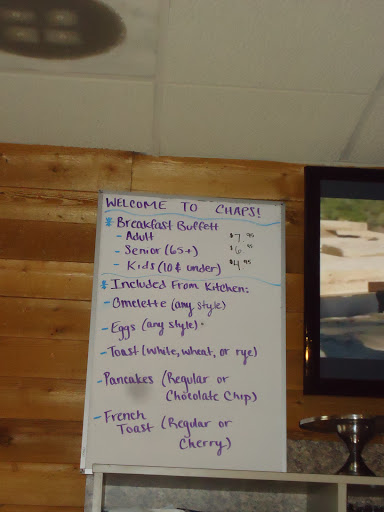 WELCOME TO CHAPS!
* Breakfast Buffett
- Adult $7.95
- Senior (65+) $6.95
- Kids (10 & under) $4.95
* Included From Kitchen:
- Omelette (any style)
- Eggs (any style)
- Toast (white, wheat, or rye)
- Pancakes (Regular or
Chocolate Chip)
- French
Toast (Regular or
Cherry)